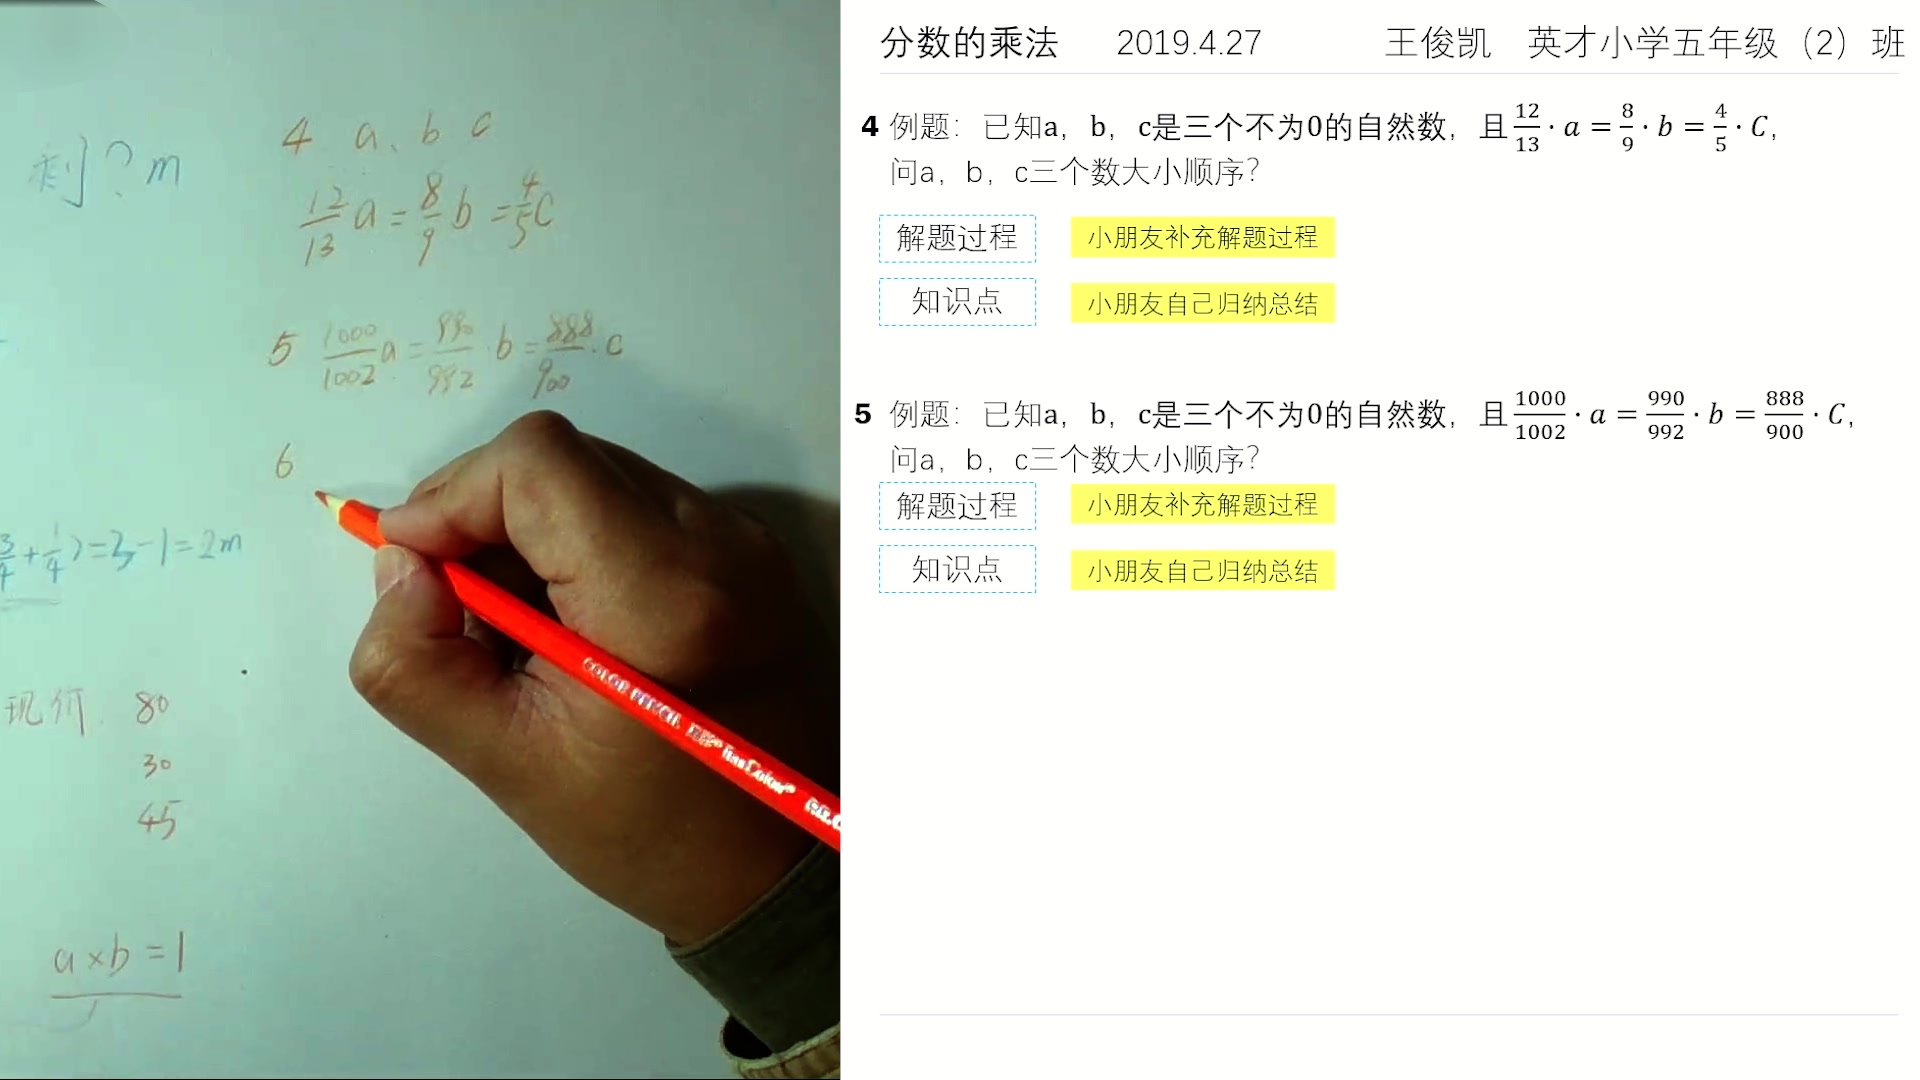 剩?m
4 a、b c
12/13 a = 8/9 b = 4/5 c
5 1000/1002 a = 990/992 · b = 888/900 · c
6
3/4 + 1/4) = 3 - 1 = 2m
现价. 80
30
45
a×b=1
COLOR PENCIL
分数的乘法 2019.4.27 王俊凯 英才小学五年级（2）班
4 例题：已知a，b，c是三个不为0的自然数，且12/13 · a = 8/9 · b = 4/5 · C，
问a，b，c三个数大小顺序？
解题过程 小朋友补充解题过程
知识点 小朋友自己归纳总结
5 例题：已知a，b，c是三个不为0的自然数，且1000/1002 · a = 990/992 · b = 888/900 · C，
问a，b，c三个数大小顺序？
解题过程 小朋友补充解题过程
知识点 小朋友自己归纳总结